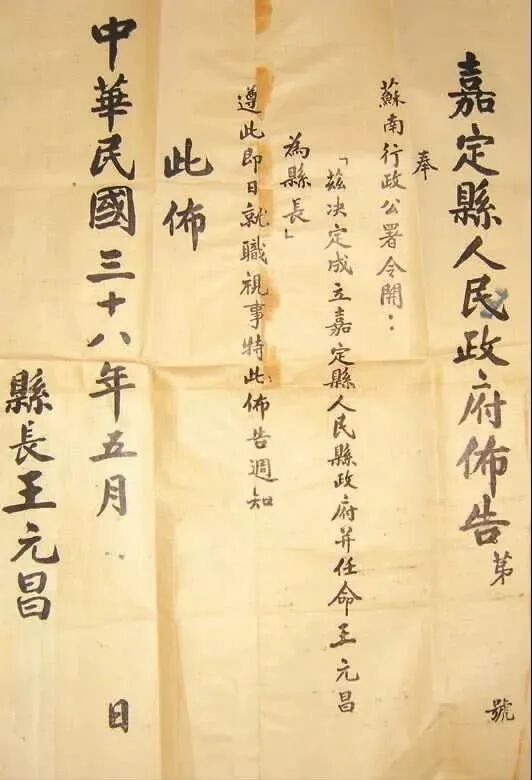 嘉定縣人民政府佈告第　號
奉
蘇南行政公署令開：
「茲決定成立嘉定縣人民縣政府并任命王元昌
為縣長」
遵此即日就職視事特此佈告週知
此佈
中華民國三十八年五月　日
縣長王元昌